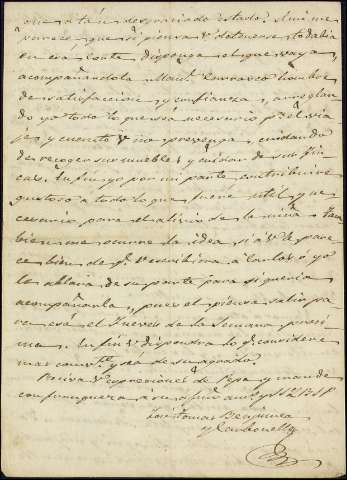 que a tan desgraciado estado? A mi me
parece, que si piensa V. detenerse todabia
en esa Corte disponga el que vaya,
acompañandola Man.l Carrasco hombre
de satisfaccion, y confianza, arreglan
do ya todo lo que sea necesario p.a el via
je, y cuanto V. nos prevenga, cuidando
de recoger sus muebles y cuidar de sus fin
cas. En fin yo por mi parte contribuiré
gustoso a todo lo que fuere util, y ne
cesario para el alivio de la misma. Tam
bien me ocurre la idea, si a V. le pare
ce bien de q.e escribiera a Carlos, ó yo
le ablara de su parte para si queria
acompañarla, pues el piensa salir pa
ra esa el Jueves de la Semana proxi
ma. En fin V. dispondra lo q.e considere
mas conv.te y sea de su agrado.
Reciva V. expresiones de Pepa y mande
con franqueza a su afmo. am.o y S.S. Q.B.S.M.
José Tomas
y Carbonell